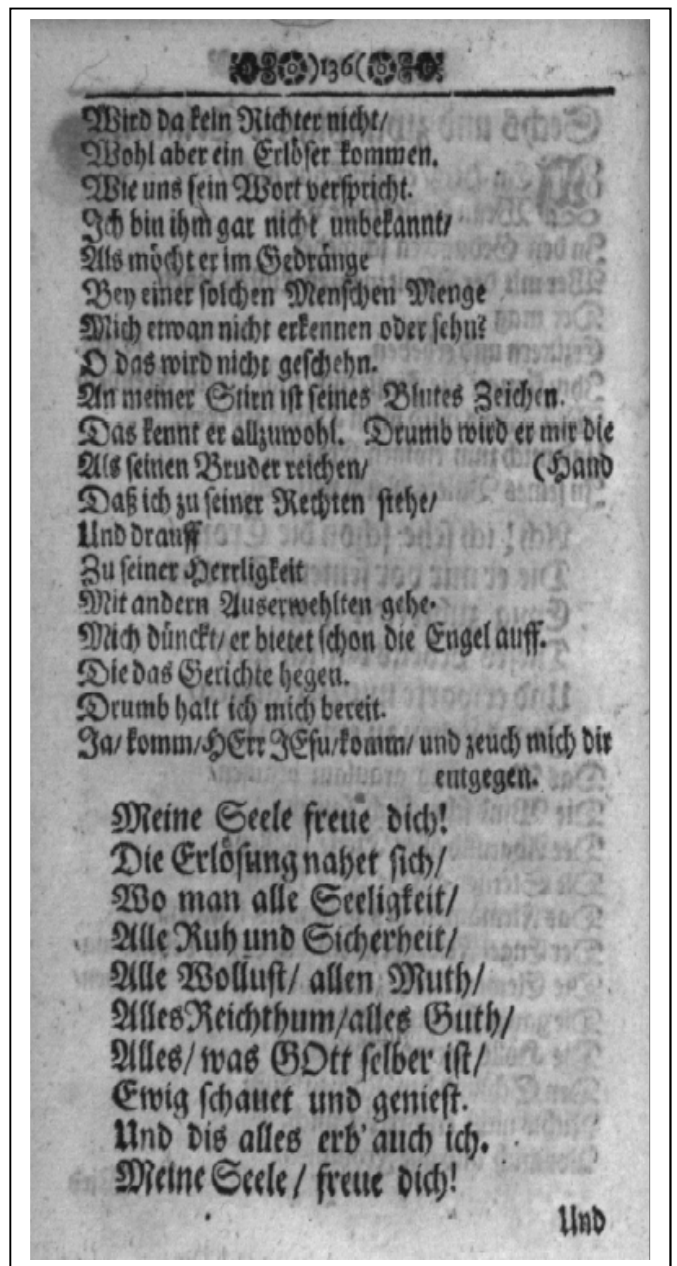 )136(
Wird da kein Richter nicht/
Wohl aber ein Erlöser kommen.
Wie uns sein Wort verspricht.
Ich bin ihm gar nicht unbekannt/
Als möcht er im Gedränge
Bey einer solchen Menschen Menge
Mich etwan nicht erkennen oder sehn?
O das wird nicht geschehn.
An meiner Stirn ist seines Blutes Zeichen.
Das kennt er allzuwohl. Drumb wird er mir die
Als seinen Bruder reichen/ (Hand
Daß ich zu seiner Rechten stehe/
Und drauff
Zu seiner Herrligkeit
Mit andern Auserwehlten gehe.
Mich dünckt/ er bietet schon die Engel auff.
Die das Gerichte hegen.
Drumb halt ich mich bereit.
Ja/ komm/ HErr JEsu/ komm/ und zeuch mich dir
entgegen.
Meine Seele freue dich!
Die Erlösung nahet sich/
Wo man alle Seeligkeit/
Alle Ruh und Sicherheit/
Alle Wollust/ allen Muth/
Alles Reichthum/ alles Guth/
Alles/ was GOtt selber ist/
Ewig schauet und geniest.
Und dis alles erb' auch ich.
Meine Seele/ freue dich!
Und